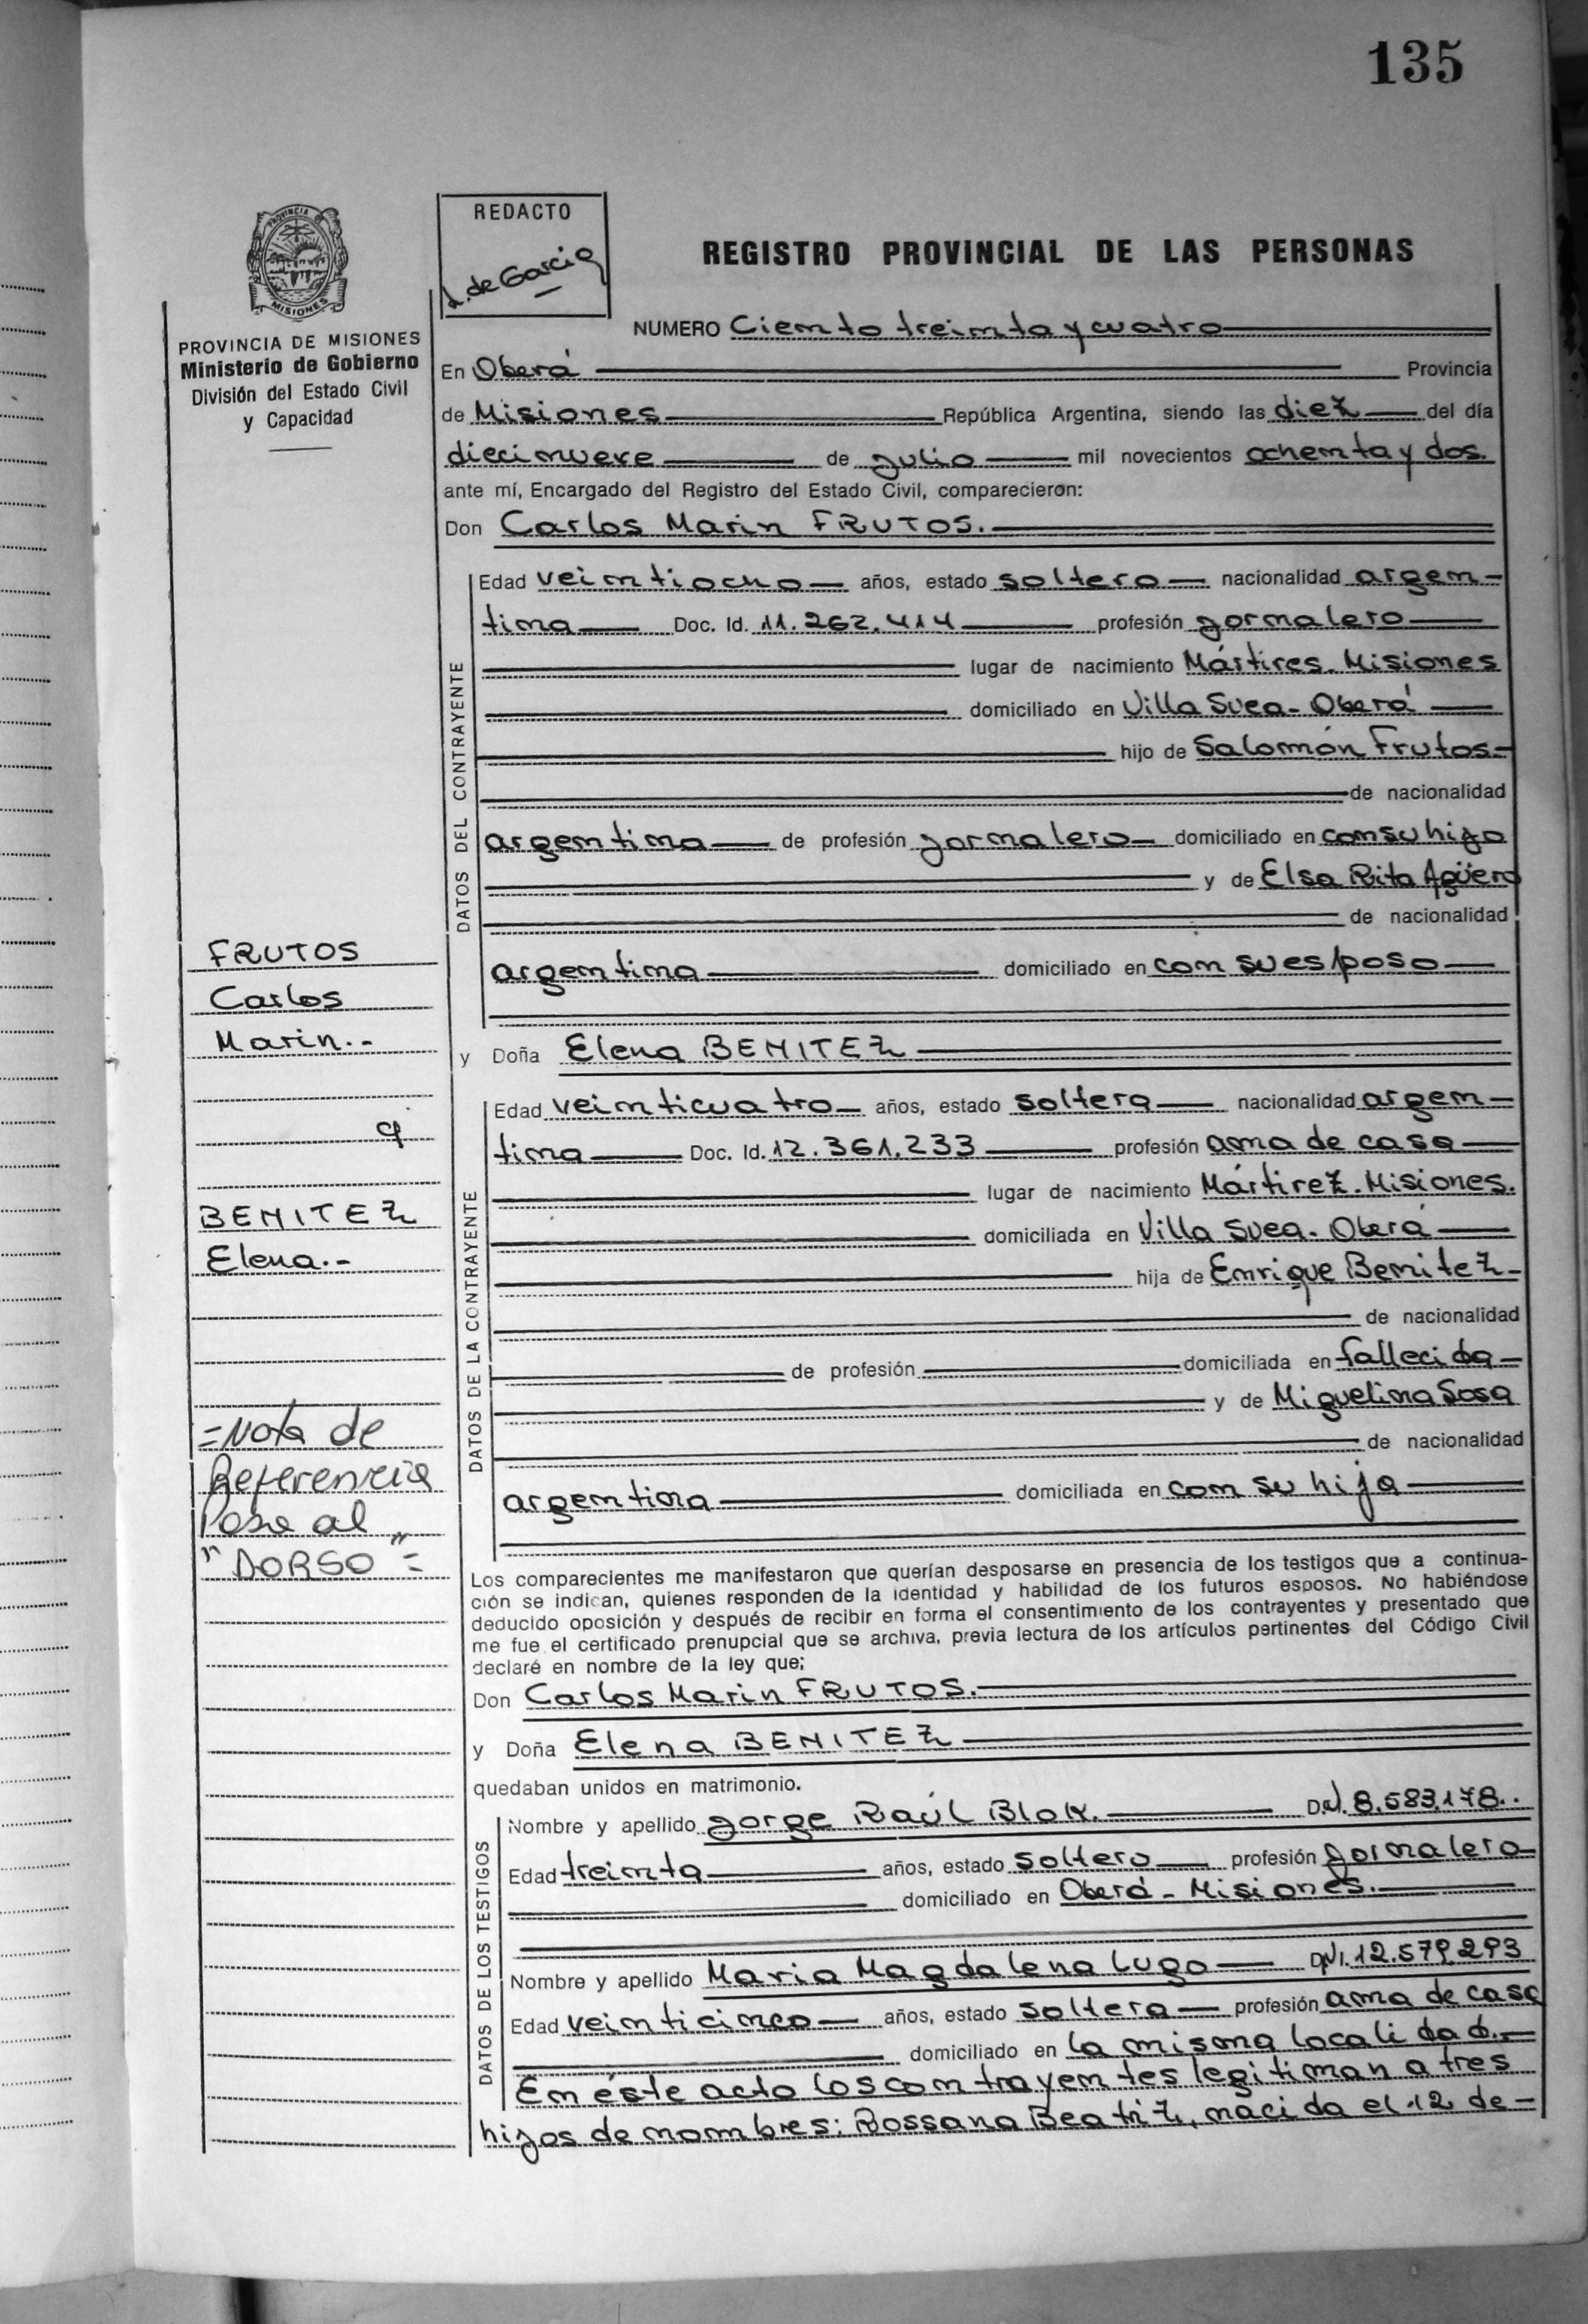 135
PROVINCIA DE
MISIONES
PROVINCIA DE MISIONES
Ministerio de Gobierno
División del Estado Civil
y Capacidad
REDACTO
L. de Garcia
REGISTRO PROVINCIAL DE LAS PERSONAS
NUMERO Ciento treinta y cuatro
En Oberá Provincia
de Misiones República Argentina, siendo las diez del día
diecinueve de julio mil novecientos ochenta y dos.
ante mí, Encargado del Registro del Estado Civil, comparecieron:
Don Carlos Marin FRUTOS.
DATOS DEL CONTRAYENTE
Edad veintiocho años, estado soltero nacionalidad argen-
tina Doc. Id. 11.262.414 profesión jornalero
lugar de nacimiento Mártires. Misiones
domiciliado en Villa Svea - Oberá
hijo de Salomón Frutos-
de nacionalidad
argentina de profesión jornalero domiciliado en con su hijo
y de Elsa Rita Agüero
de nacionalidad
argentina domiciliado en con su esposo
y Doña Elena BENITEZ
DATOS DE LA CONTRAYENTE
Edad veinticuatro años, estado soltera nacionalidad argen-
tina Doc. Id. 12.361.233 profesión ama de casa
lugar de nacimiento Mártirez. Misiones.
domiciliada en Villa Svea. Oberá
hija de Enrique Benitez-
de nacionalidad
de profesión domiciliada en fallecido
y de Miguelina Sosa
de nacionalidad
argentina domiciliada en con su hija
FRUTOS
Carlos
Marin.-
y
BENITEZ
Elena.-
=Nota de
Referencia
Pase al
"DORSO"=
Los comparecientes me manifestaron que querían desposarse en presencia de los testigos que a continua-
ción se indican, quienes responden de la identidad y habilidad de los futuros esposos. No habiéndose
deducido oposición y después de recibir en forma el consentimiento de los contrayentes y presentado que
me fue el certificado prenupcial que se archiva, previa lectura de los artículos pertinentes del Código Civil
declaré en nombre de la ley que;
Don Carlos Marin FRUTOS.
y Doña Elena BENITEZ
quedaban unidos en matrimonio.
DATOS DE LOS TESTIGOS
Nombre y apellido Jorge Raúl Blok. D.N.I. 8.583.178.
Edad treinta años, estado soltero profesión jornalero
domiciliado en Oberá - Misiones.
Nombre y apellido Maria Magdalena Lugo DNI. 12.579.293
Edad veinticinco años, estado soltera profesión ama de casa
domiciliado en la misma localidad.-
En éste acto los contrayentes legitiman a tres
hijos de nombres: Rossana Beatriz, nacida el 12 de-